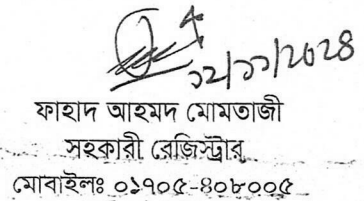 ১২/১১/২০২৪
ফাহাদ আহমদ মোমতাজী
সহকারী রেজিস্ট্রার
মোবাইলঃ ০১৭০৫-৪০৮০০৫